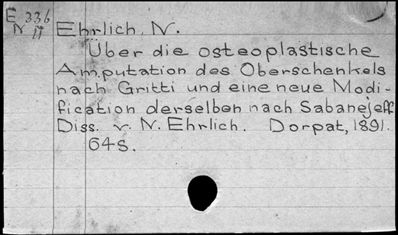 E 336
N 11
Ehrlich, N.
Über die osteoplastische
Amputation des Oberschenkels
nach Gritti und eine neue Modi-
fication derselben nach Sabanejeff
Diss. v. N. Ehrlich. Dorpat, 1891.
64 S.